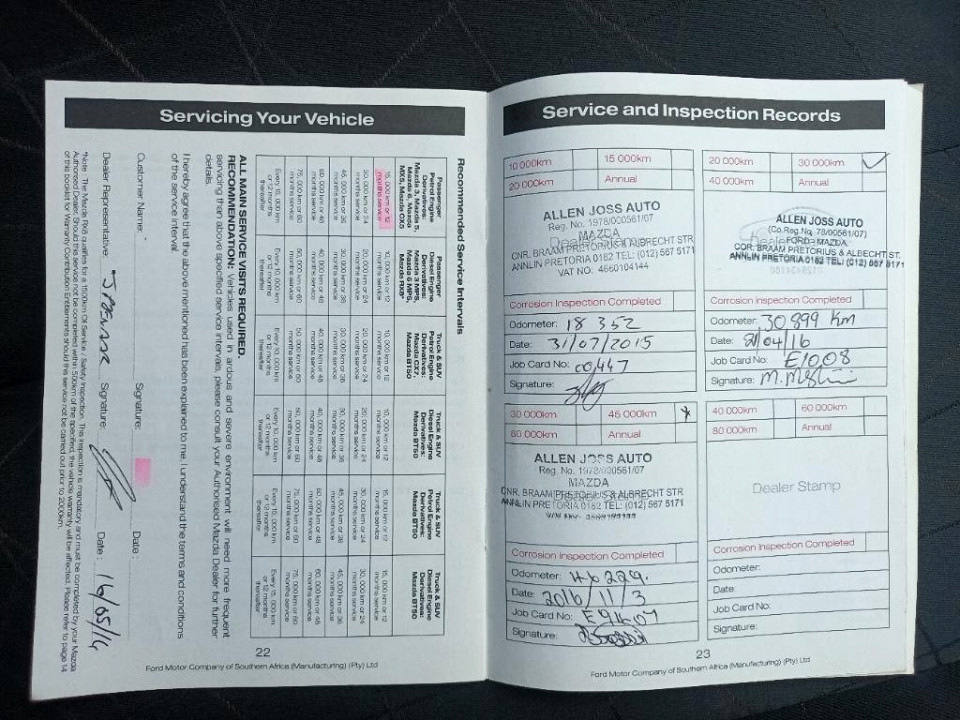 Servicing Your Vehicle
Recommended Service Intervals
Passenger Petrol Engine Derivatives: Mazda 2, Mazda 5, Mazda 6, Mazda MX5, Mazda CX5
15, 000 km or 12 months service
30, 000 km or 24 months service
45, 000 km or 36 months service
60, 000 km or 48 months service
75, 000 km or 60 months service
Every 15, 000 km or 12 months thereafter
Passenger Diesel Engine Derivatives: Mazda 3 MPS, Mazda RX8*
10, 000 km or 12 months service
20,000 km or 24 months service
30, 000 km or 36 months service
40, 000 km or 48 months service
50, 000 km or 60 months service
Every 10,000 km or 12 months thereafter
Truck & SUV Petrol Engine Derivatives: Mazda CX7, Mazda BT50
10, 000 km or 12 months service
20, 000 km or 24 months service
30, 000 km or 36 months service
40, 000 km or 48 months service
50, 000 km or 60 months service
Every 10, 000 km or 12 months thereafter
Truck & SUV Diesel Engine Derivatives: Mazda BT50
10, 000 km or 12 months service
20, 000 km or 24 months service
30, 000 km or 36 months service
40, 000 km or 48 months service
Every 10, 000 km or 12 months thereafter
Truck & SUV Petrol Engine Derivatives: Mazda BT50
15, 000 km or 12 months service
30, 000 km or 24 months service
45, 000 km or 36 months service
60, 000 km or 48 months service
75, 000 km or 60 months service
Every 15, 000 km or 12 months thereafter
Truck & SUV Diesel Engine Derivatives: Mazda BT50
15, 000 km or 12 months service
30, 000 km or 24 months service
45, 000 km or 36 months service
60, 000 km or 48 months service
75, 000 km or 60 months service
Every 15, 000 km or 12 months thereafter
ALL MAIN SERVICE VISITS REQUIRED.
RECOMMENDATION: Vehicles used in ardous and severe environment will need more frequent
servicing than above specified service intervals, please consult your Authorised Mazda Dealer for further
details.
I hereby agree that the above mentioned has been explained to me. I understand the terms and conditions
of the service interval.
Customer Name: Signature: Date:
Dealer Representative: Signature: Date: 16/05/14
*Note : The Mazda RX8 qualifies for a 1500km Oil Service / Safety Inspection. This inspection is mandatory and must be completed by your Mazda
Authorised Dealer. Should this service not be completed within 500km of the specified, the vehicle warranty will be affected. Please refer to page 14
of this booklet for Warranty Contribution Entitlements should this service not be carried out prior to 2000km.
22
Ford Motor Company of Southern Africa (Manufacturing) (Pty) Ltd
Service and Inspection Records
10 000km 15 000km
20 000km Annual
ALLEN JOSS AUTO
Reg. No. 1978/000561/07
MAZDA
CNR. BRAAM PRETORIUS & ALBRECHT STR
ANNLIN PRETORIA 0182 TEL: (012) 567 5171
VAT NO. 4660104144
Corrosion Inspection Completed
Odometer: 18 352
Date: 31/07/2015
Job Card No:
Signature:
20 000km 30 000km ✓
40 000km Annual
ALLEN JOSS AUTO
(Co.Reg No. 78/00561/07)
FORD - MAZDA
COR. BRAAM PRETORIUS & ALBECHT ST.
ANNLIN PRETORIA 0182 TEL: (012) 567 5171
Corrosion Inspection Completed
Odometer: 30 899 Km
Date: /04/16
Job Card No: E1008
Signature:
30 000km 45 000km *
60 000km Annual
ALLEN JOSS AUTO
Reg. No. 1978/000561/07
MAZDA
CNR. BRAAM PRETORIUS & ALBRECHT STR
ANNLIN PRETORIA 0182 TEL: (012) 567 5171
Corrosion Inspection Completed
Odometer:
Date: 2016/11/3
Job Card No:
Signature:
40 000km 60 000km
80 000km Annual
Dealer Stamp
Corrosion Inspection Completed
Odometer:
Date:
Job Card No:
Signature:
23
Ford Motor Company of Southern Africa (Manufacturing) (Pty) Ltd